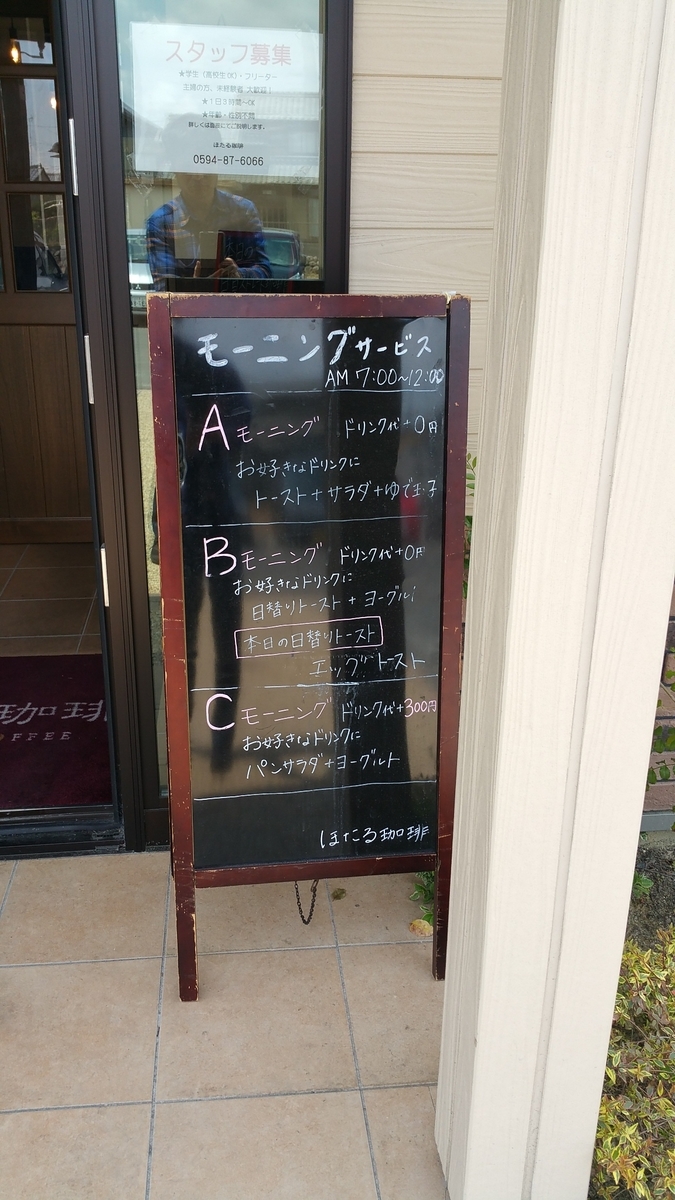 スタッフ募集
★学生（高校生OK）・フリーター
主婦の方、未経験者 大歓迎！
★1日3時間～OK
★年齢・性別不問
詳しくは面談にてご説明します。
ほたる珈琲
0594-87-6066
モーニングサービス
AM 7:00～12:00
A モーニング ドリンク代+0円
お好きなドリンクに
トースト+サラダ+ゆで玉子
B モーニング ドリンク代+0円
お好きなドリンクに
日替りトースト + ヨーグルト
本日の日替りトースト
エッグトースト
C モーニング ドリンク代+300円
お好きなドリンクに
パンサラダ+ヨーグルト
ほたる珈琲
珈琲
OFFEE